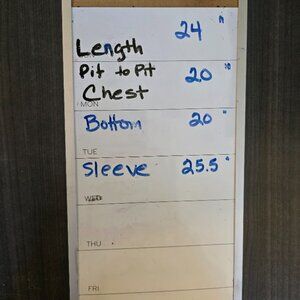 Length 24"
Pit to Pit 20"
Chest
MON
Bottom 20"
TUE
Sleeve 25.5"
WED
THU
FRI